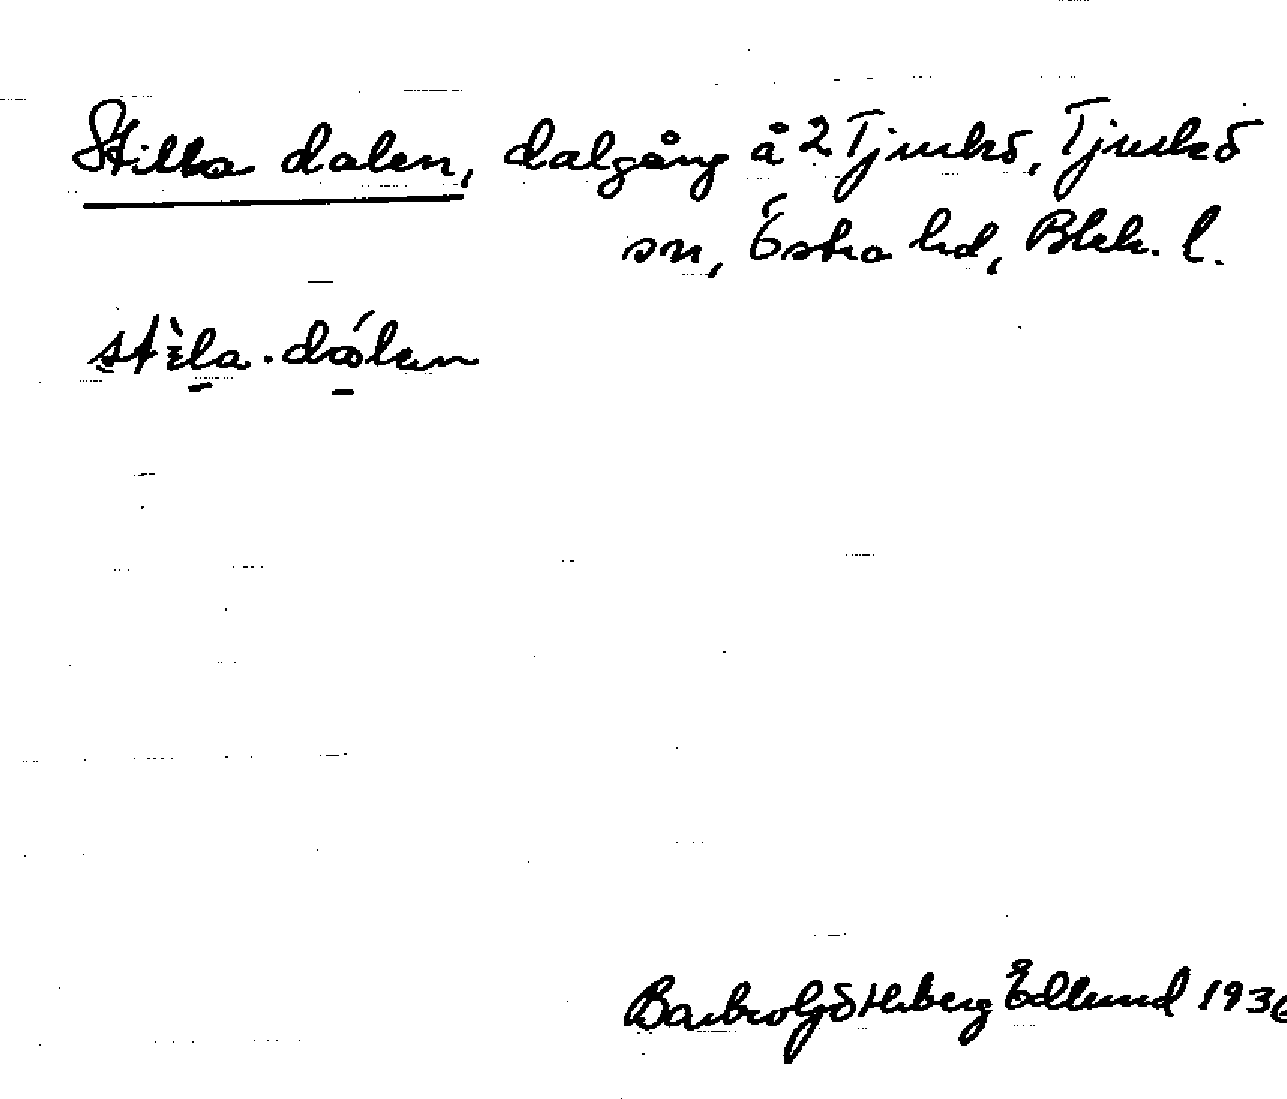 Stilla dalen, dalgång å 2 Tjurkö, Tjurkö
sn, Östra hd, Blek. l.
Barbro Götherberg Edlund 1936